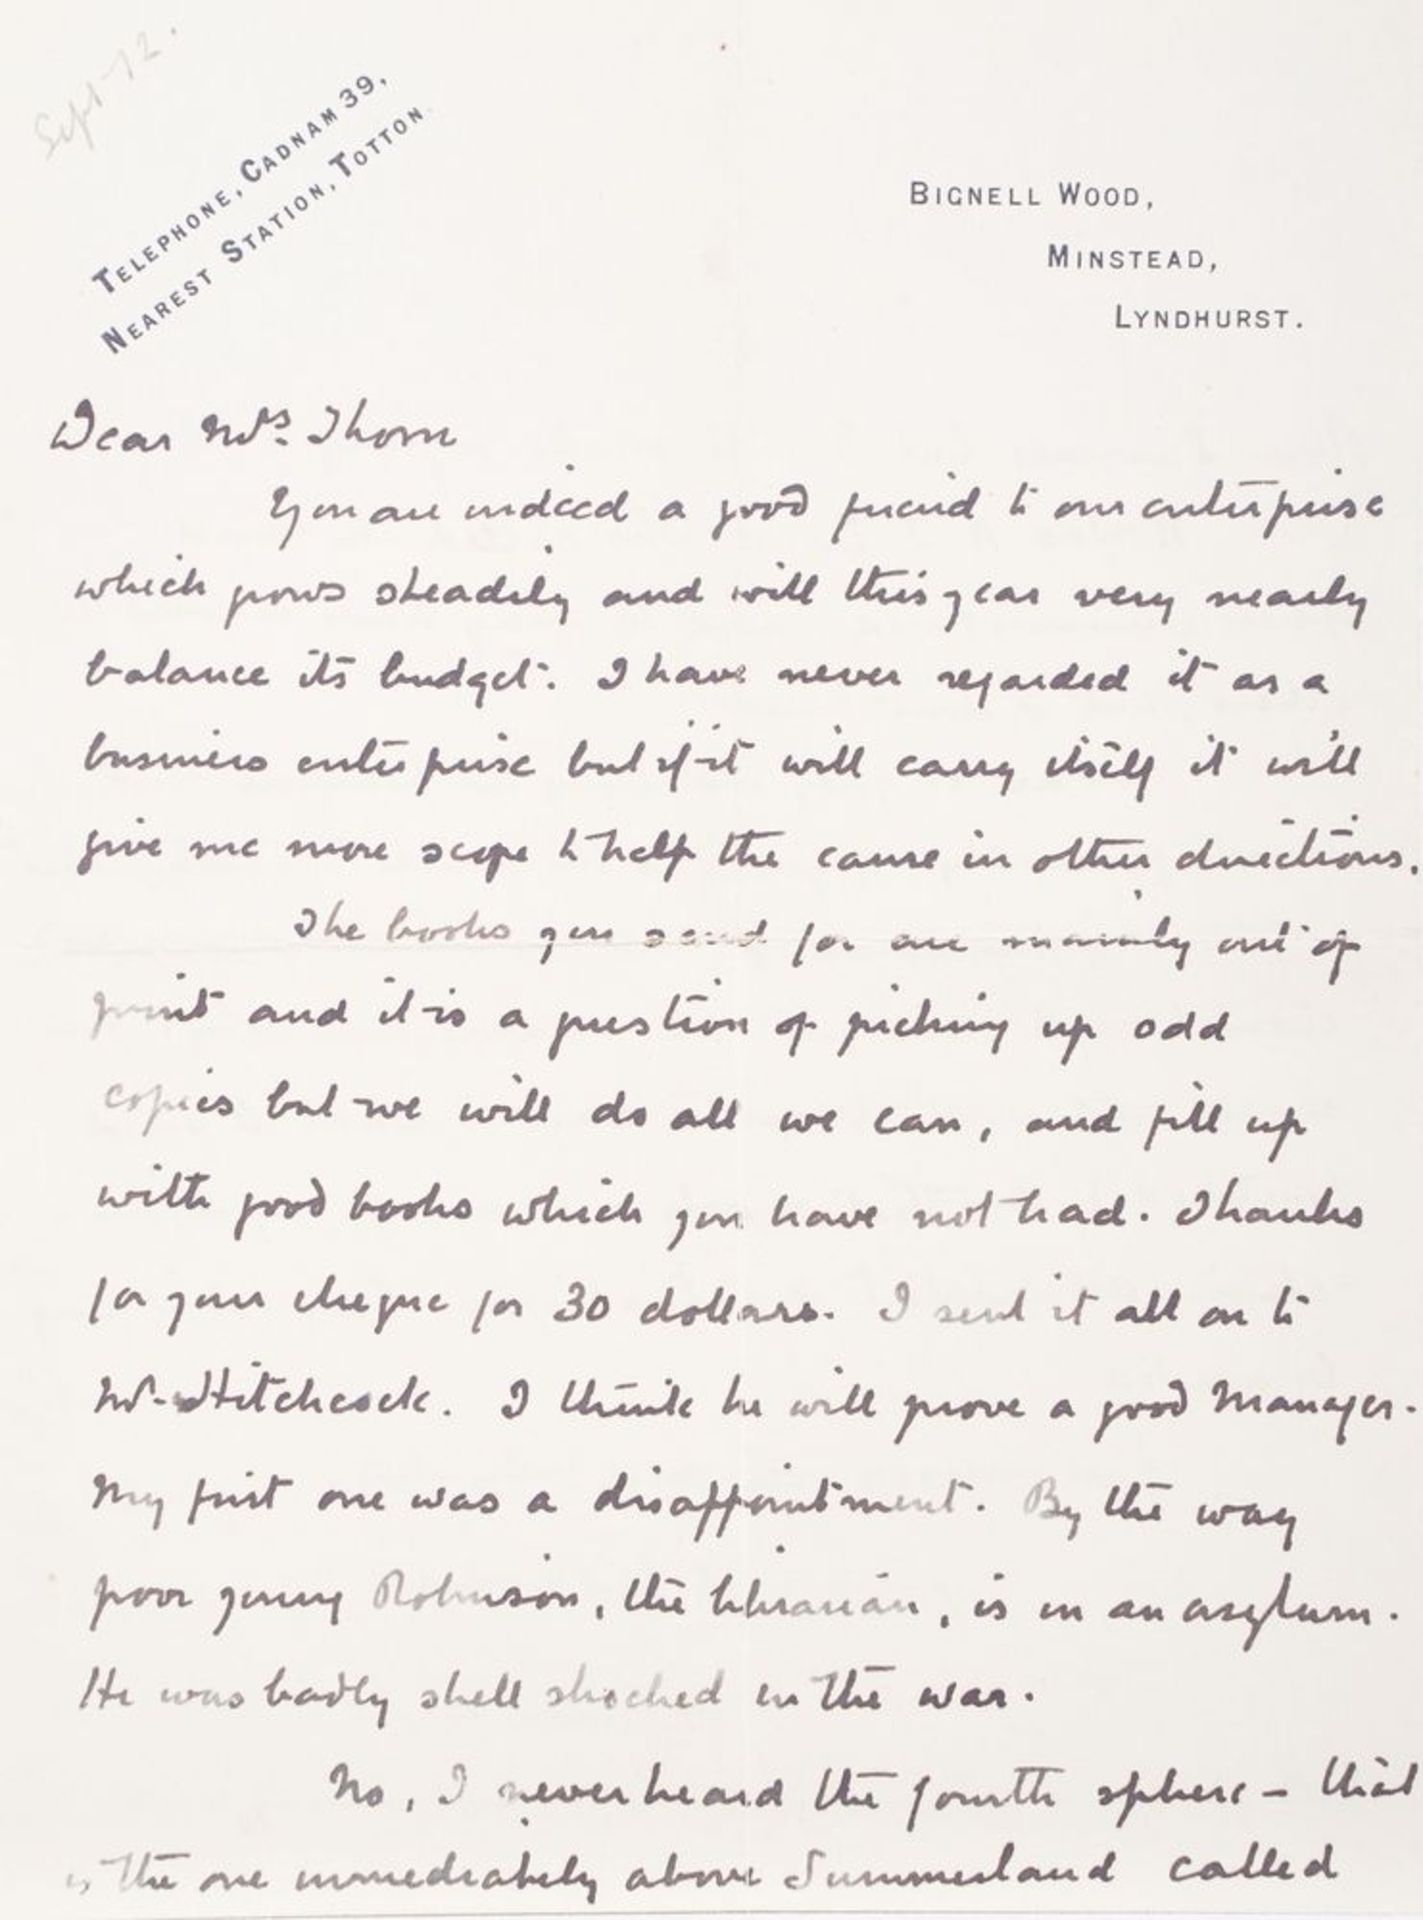 Sept 12.
TELEPHONE, CADNAM 39,
NEAREST STATION, TOTTON.
BIGNELL WOOD,
MINSTEAD,
LYNDHURST.
Dear Mrs. Thorne
You are indeed a good friend to our enterprise
which grows steadily and will this year very nearly
balance its budget. I have never regarded it as a
business enterprise but if it will carry itself it will
give me more scope to help the cause in other directions.
The books you send for are mainly out of
print and it is a question of picking up odd
copies but we will do all we can, and fill up
with good books which you have not had. Thanks
for your cheque for 30 dollars. I sent it all on to
Mr. Hitchcock. I think he will prove a good Manager.
My first one was a disappointment. By the way
poor young Robinson, the librarian, is in an asylum.
He was badly shell shocked in the war.
No, I never heard the fourth sphere – that
is the one immediately above Summerland called